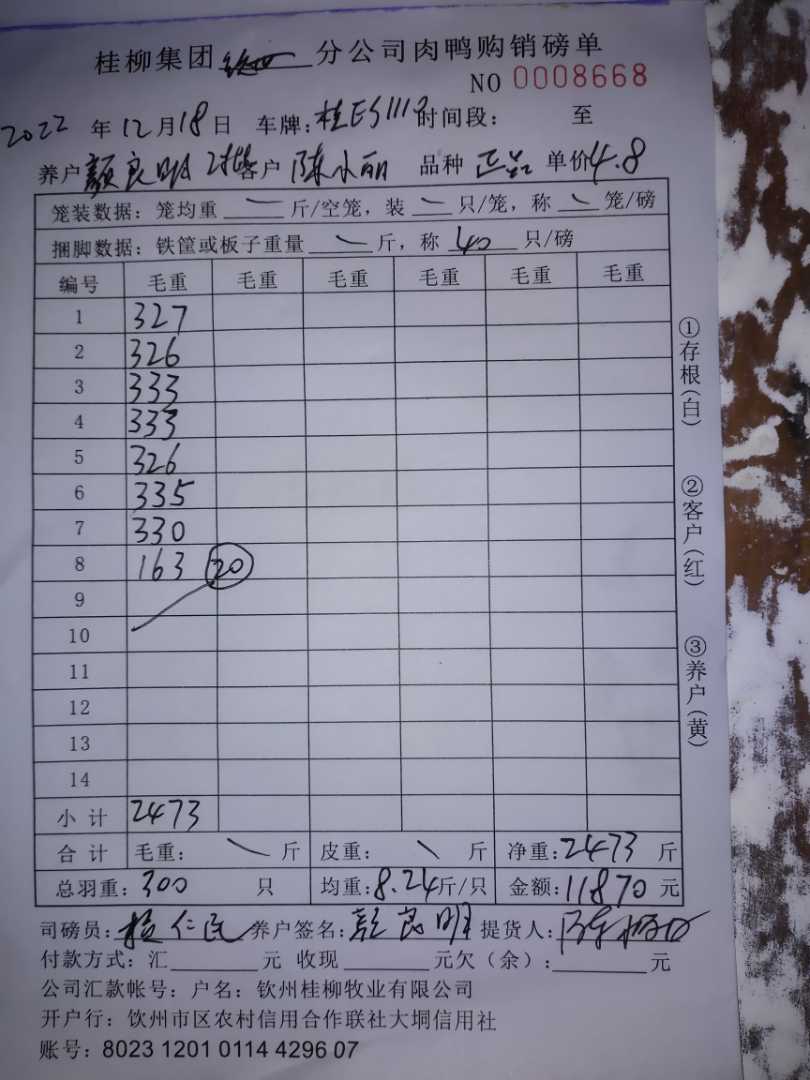 桂柳集团 分公司肉鸭购销磅单
NO 0008668
2022 年 12 月 18 日 车牌: 时间段: 至
养户 颜良明 客户 陈小丽 品种 正品 单价 4.8
笼装数据: 笼均重 — 斤/空笼, 装 — 只/笼, 称 — 笼/磅
捆脚数据: 铁筐或板子重量 — 斤, 称 40 只/磅
编号 毛重 毛重 毛重 毛重 毛重 毛重
1 327
2 326
3 333
4 333
5 326
6 335
7 330
8 163 20
9
10
11
12
13
14
小计 2473
合计 毛重: 斤 皮重: 斤 净重: 2473 斤
总羽重: 300 只 均重: 8.24 斤/只 金额: 11870 元
司磅员: 仁民 养户签名: 颜良明 提货人:
付款方式: 汇 元 收现 元欠(余): 元
公司汇款帐号: 户名: 钦州桂柳牧业有限公司
开户行: 钦州市区农村信用合作联社大垌信用社
账号: 8023 1201 0114 4296 07
①存根(白)
②客户(红)
③养户(黄)